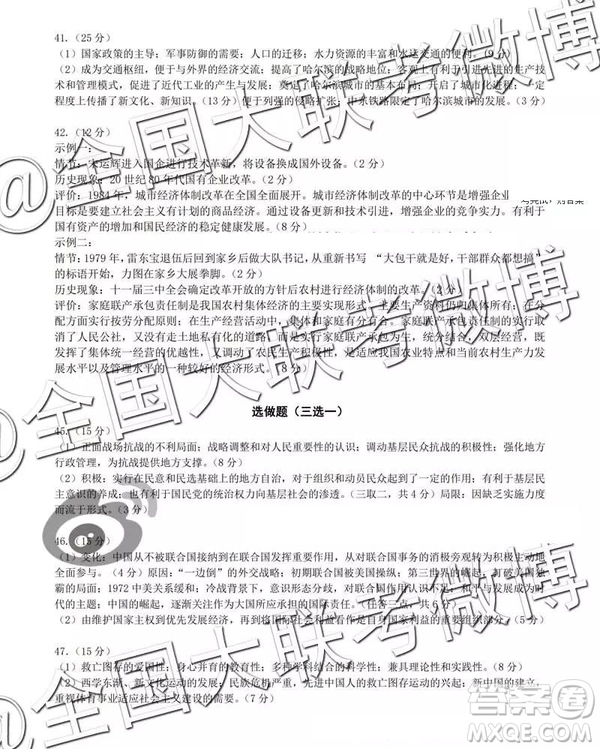 41.（25 分）
（1）国家政策的主导；军事防御的需要；人口的迁移；水力资源的丰富和水运交通的便利。（9 分）
（2）成为交通枢纽，便于与外界的经济交流；提高了哈尔滨的战略地位；有利于引进先进的生产技
术和管理模式，促进了近代工业的产生与发展；奠定了哈尔滨城市的基本布局；开启了城市化进程；一定
程度上传播了新文化、新知识。（13 分）便于列强的侵略扩张；中东铁路限定了哈尔滨城市的发展。（3 分）
42.（12 分）
示例一：
情节：宋运辉进入国企进行技术革新，将设备换成国外设备。（2 分）
历史现象：20 世纪 80 年代国有企业改革。（2 分）
评价：1984 年，城市经济体制改革在全国全面展开。城市经济体制改革的中心环节是增强企业
目标是要建立社会主义有计划的商品经济。通过设备更新和技术引进，增强企业的竞争实力。有利于
国有资产的增加和国民经济的稳定健康发展。（8 分）
示例二：
情节：1979 年，雷东宝退伍后回到家乡后做大队书记，从重新书写 “大包干就是好，干部群众都想搞”
的标语开始，力图在家乡大展拳脚。（2 分）
历史现象：十一届三中全会确定改革开放的方针后农村进行的经济体制改革。（2 分）
评价：家庭联产承包责任制是我国农村集体经济的主要实现形式。主要生产资料仍归集体所有；在分
配方面实行按劳分配原则；在生产经营活动中，集体和家庭有分有合。家庭联产承包责任制的实行取
消了人民公社，又没有走土地私有化的道路，而是实行家庭联产承包为主，统分结合，双层经营，既
发挥了集体统一经营的优越性，又调动了农民生产积极性，是适应我国农业特点和当前农村生产力发
展水平以及管理水平的一种较好的经济形式。（8 分）
选做题（三选一）
45.（15 分）
（1）正面战场抗战的不利局面；战略调整和对人民重要性的认识；调动基层民众抗战的积极性；强化地方
行政管理，为抗战提供地方支撑。（8 分）
（2）积极：实行在民意和民选基础上的地方自治，对于组织和动员力量抗战有积极作用；有利于基层民
主意识的养成；也有利于国民党的统治权力向基层社会的渗透。（三取二，共 4 分）局限：因缺乏实施力度
而流于形式。（3 分）
46.（15 分）
（1）变化：中国从不被联合国接纳到在联合国发挥重要作用，从对联合国事务的消极旁观转变为积极主动地
全面参与。（4 分）原因：“一边倒”的外交战略；初期联合国被美国操纵；第三世界的崛起；打破美国独
霸的局面；1972 中美关系缓和；冷战背景下，意识形态分歧，对联合国作用认识不足；和平与发展的时
代的主题；中国的崛起，逐渐关注在联合国作用。（任答三点，6 分）
（2）由维护国家主权到优先发展经济，再到将国际合作看作是自身国家利益的重要因素。（5 分）
47.（15 分）
（1）救亡图存的爱国性；身心兼顾的全面性；多种学科结合的科学性；兼采理论和实践的实践性。（8 分）
（2）西学东渐、新文化运动的发展；民族危机严重，先进中国人的救亡图存运动的兴起；新中国的建立，
重视体育事业适应社会主义建设的需要。（7 分）
@全国大联考微博
@全国大联考微博
答案卷